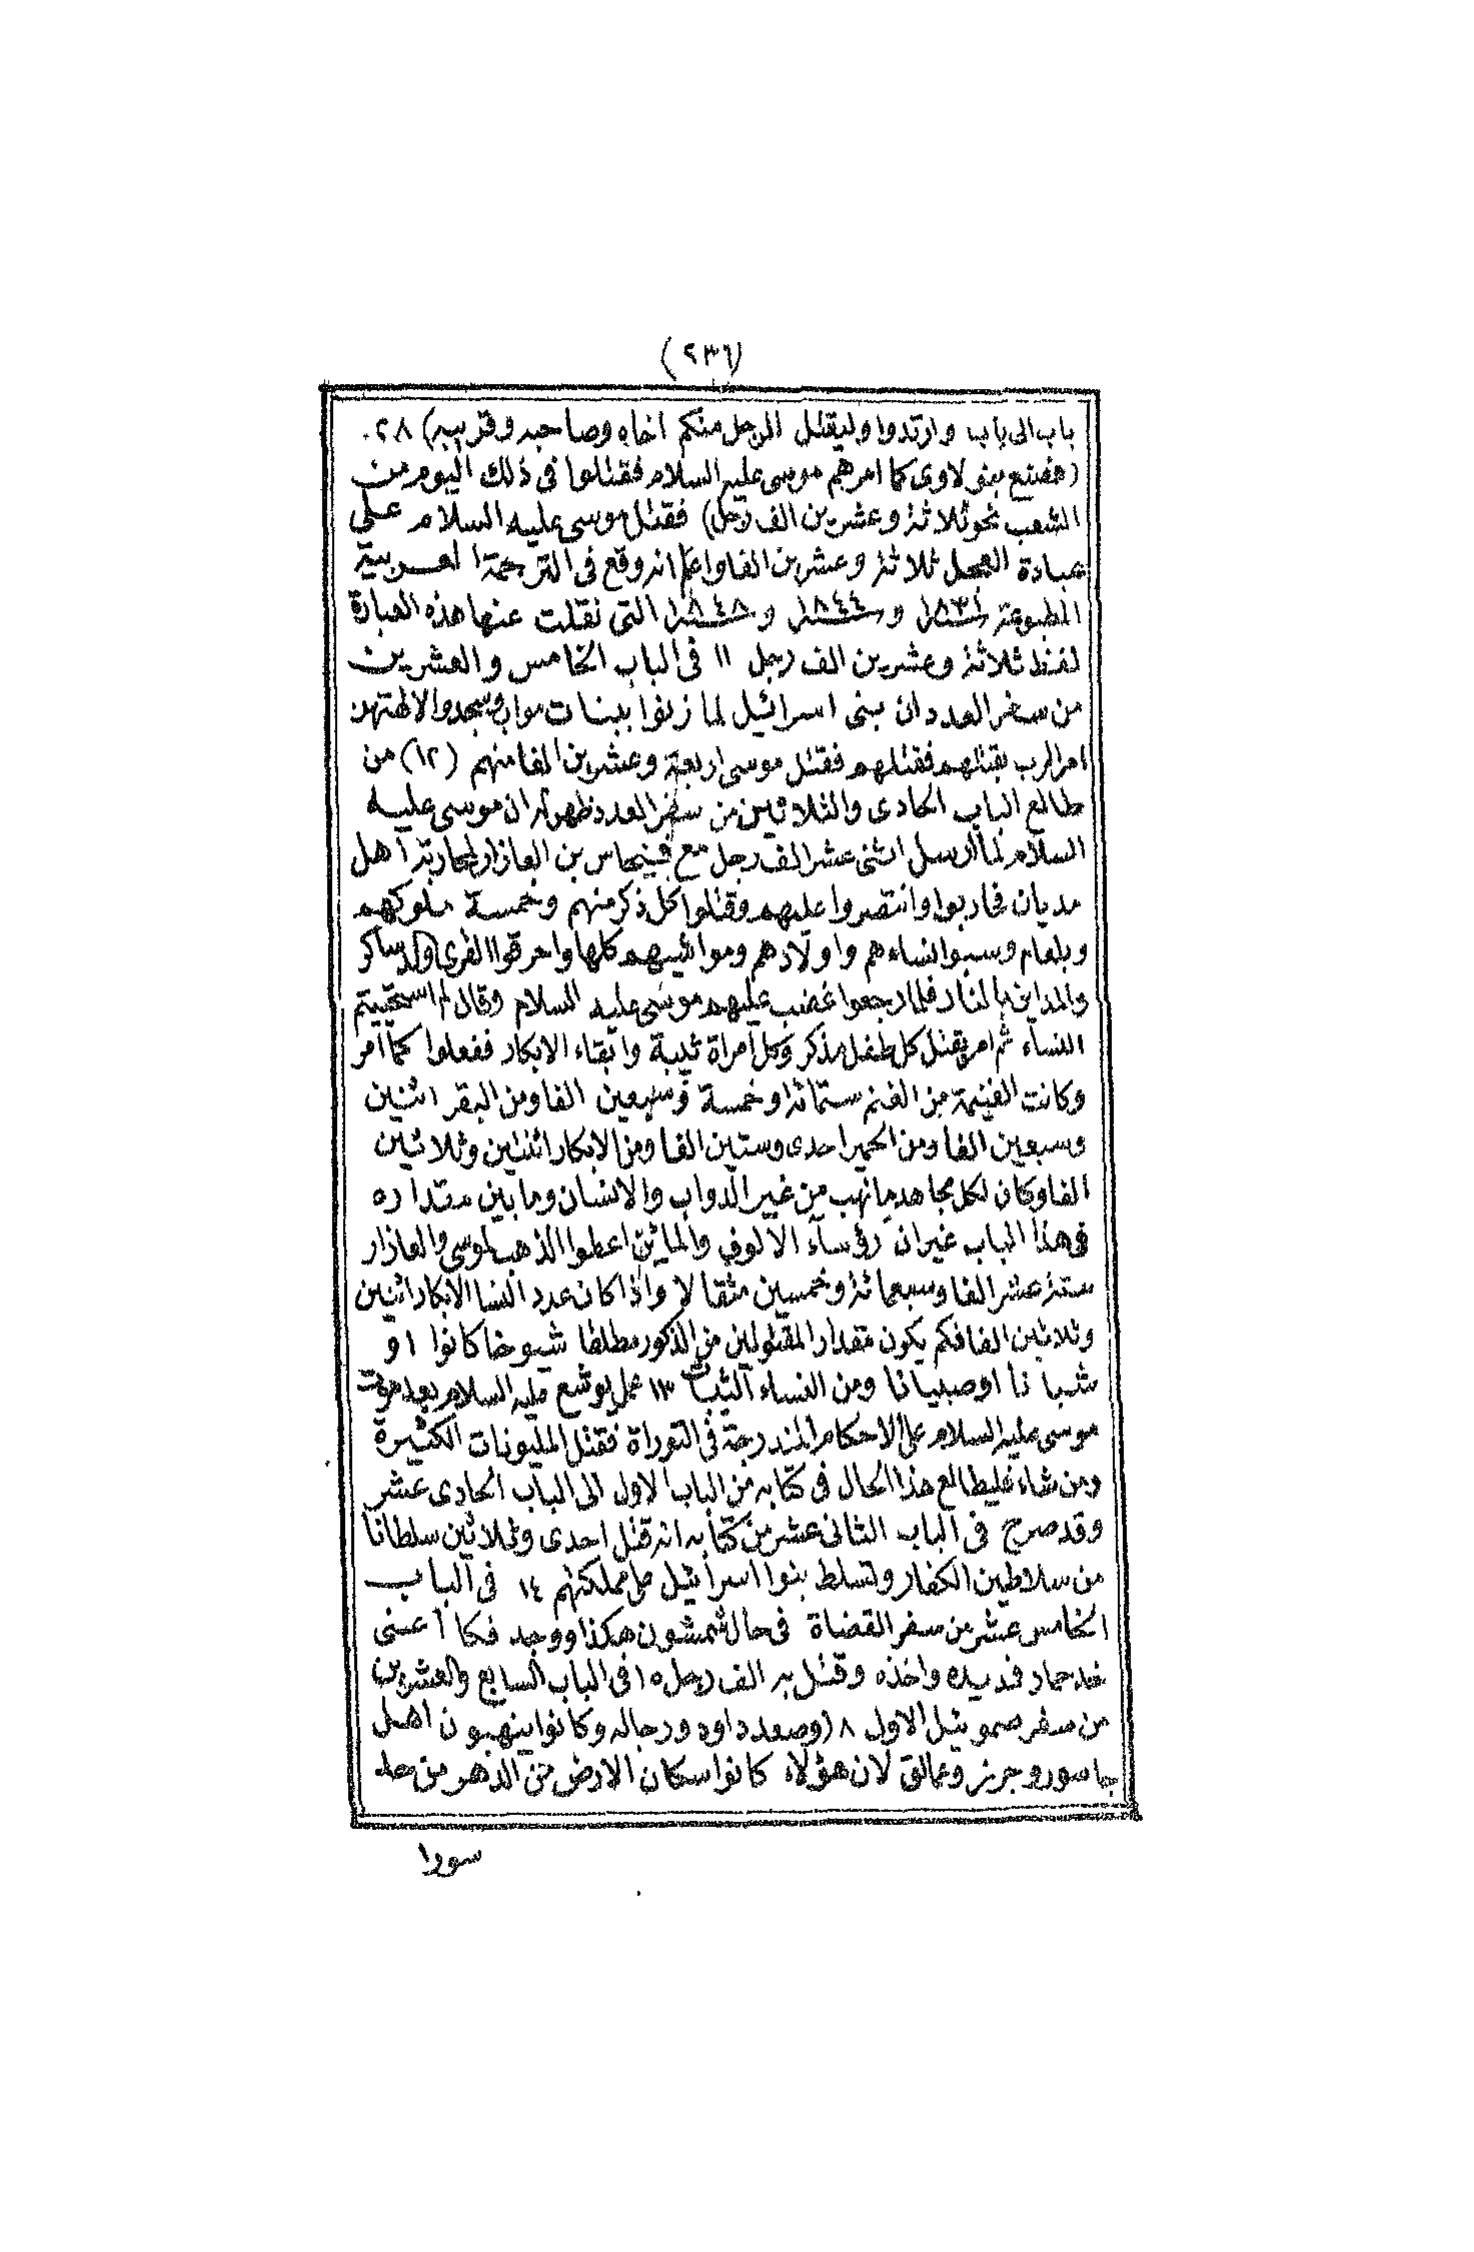 (٢٣٦)
باب الى باب وارتدوا وليقتل الرجل منكم اخاه وصاحبه وقريبه) ٢٨.
(فصنع بنو لاوى كما امرهم موسى عليه السلام فقتلوا فى ذلك اليوم من
الشعب نحو ثلاثة وعشرين الف رجل) فقتل موسى عليه السلام على
عبادة العجل ثلاثة وعشرين الفا واعلم انه وقع فى الترجمة العربية
المطبوعة ١٨٣١ و ١٨٤٤ و ١٨٤٨ التى نقلت عنها هذه العبارة
لفظ ثلاثة وعشرين الف رجل ١١ فى الباب الخامس والعشرين
من سفر العدد ان بنى اسرائيل لما زنوا ببنات مواب وسجدوا لالهتهن
امر الرب بقتلهم فقتلهم فقتل موسى اربعة وعشرين الفا منهم (١٢) من
طالع الباب الحادى والثلاثين من سفر العدد ظهر له ان موسى عليه
السلام لما ارسل اثنى عشر الف رجل مع فينحاس بن العازار لمحاربة اهل
مديان فحاربوا وانتصروا عليهم وقتلوا كل ذكر منهم وخمسة ملوكهم
وبلعام وسبوا نساءهم واولادهم ومواشيهم كلها واحرقوا القرى والدساكر
والمداين بالنار فلما رجعوا غضب عليهم موسى عليه السلام وقال لم استحييتم
النساء ثم امر بقتل كل طفل مذكر وكل امراة ثيبة وابقاء الابكار ففعلوا كما امر
وكانت الغنيمة من الغنم ستمائة وخمسة وسبعين الفا ومن البقر اثنين
وسبعين الفا ومن الحمير احدى وستين الفا ومن الابكار اثنتين وثلاثين
الفا وكان لكل مجاهد ما نهب من غير الدواب والانسان وما بين مقداره
فى هذا الباب غير ان رؤساء الالوف والمائين اعطوا الذهب لموسى والعازار
ستة عشر الفا وسبعمائة وخمسين مثقالا واذا كان عدد النسا الابكار اثنين
وثلاثين الفا فكم يكون مقدار المقتولين من الذكور مطلقا شيوخا كانوا او
شبانا او صبيانا ومن النساء الثيبات ١٣ عمل يوشع عليه السلام بعد موت
موسى عليه السلام على الاحكام المندرجة فى التوراة فقتل المليونات الكثيرة
ومن شاء فليطالع هذا الحال فى كتابه من الباب الاول الى الباب الحادى عشر
وقد صرح فى الباب الثانى عشر من كتابه انه قتل احدى وثلاثين سلطانا
من سلاطين الكفار وتسلط بنوا اسرائيل على مملكتهم ١٤ فى الباب
الخامس عشر من سفر القضاة فى حال شمشون هكذا ووجد فكا اعنى
خد حمار فمد يده واخذه وقتل به الف رجل ١٥ فى الباب السابع والعشرين
من سفر صموئيل الاول ٨ (وصعد داود ورجاله وكانوا ينهبون اهل
جاسور وجرز وعمالق لان هؤلاء كانوا سكان الارض من الدهر من حد
سورا